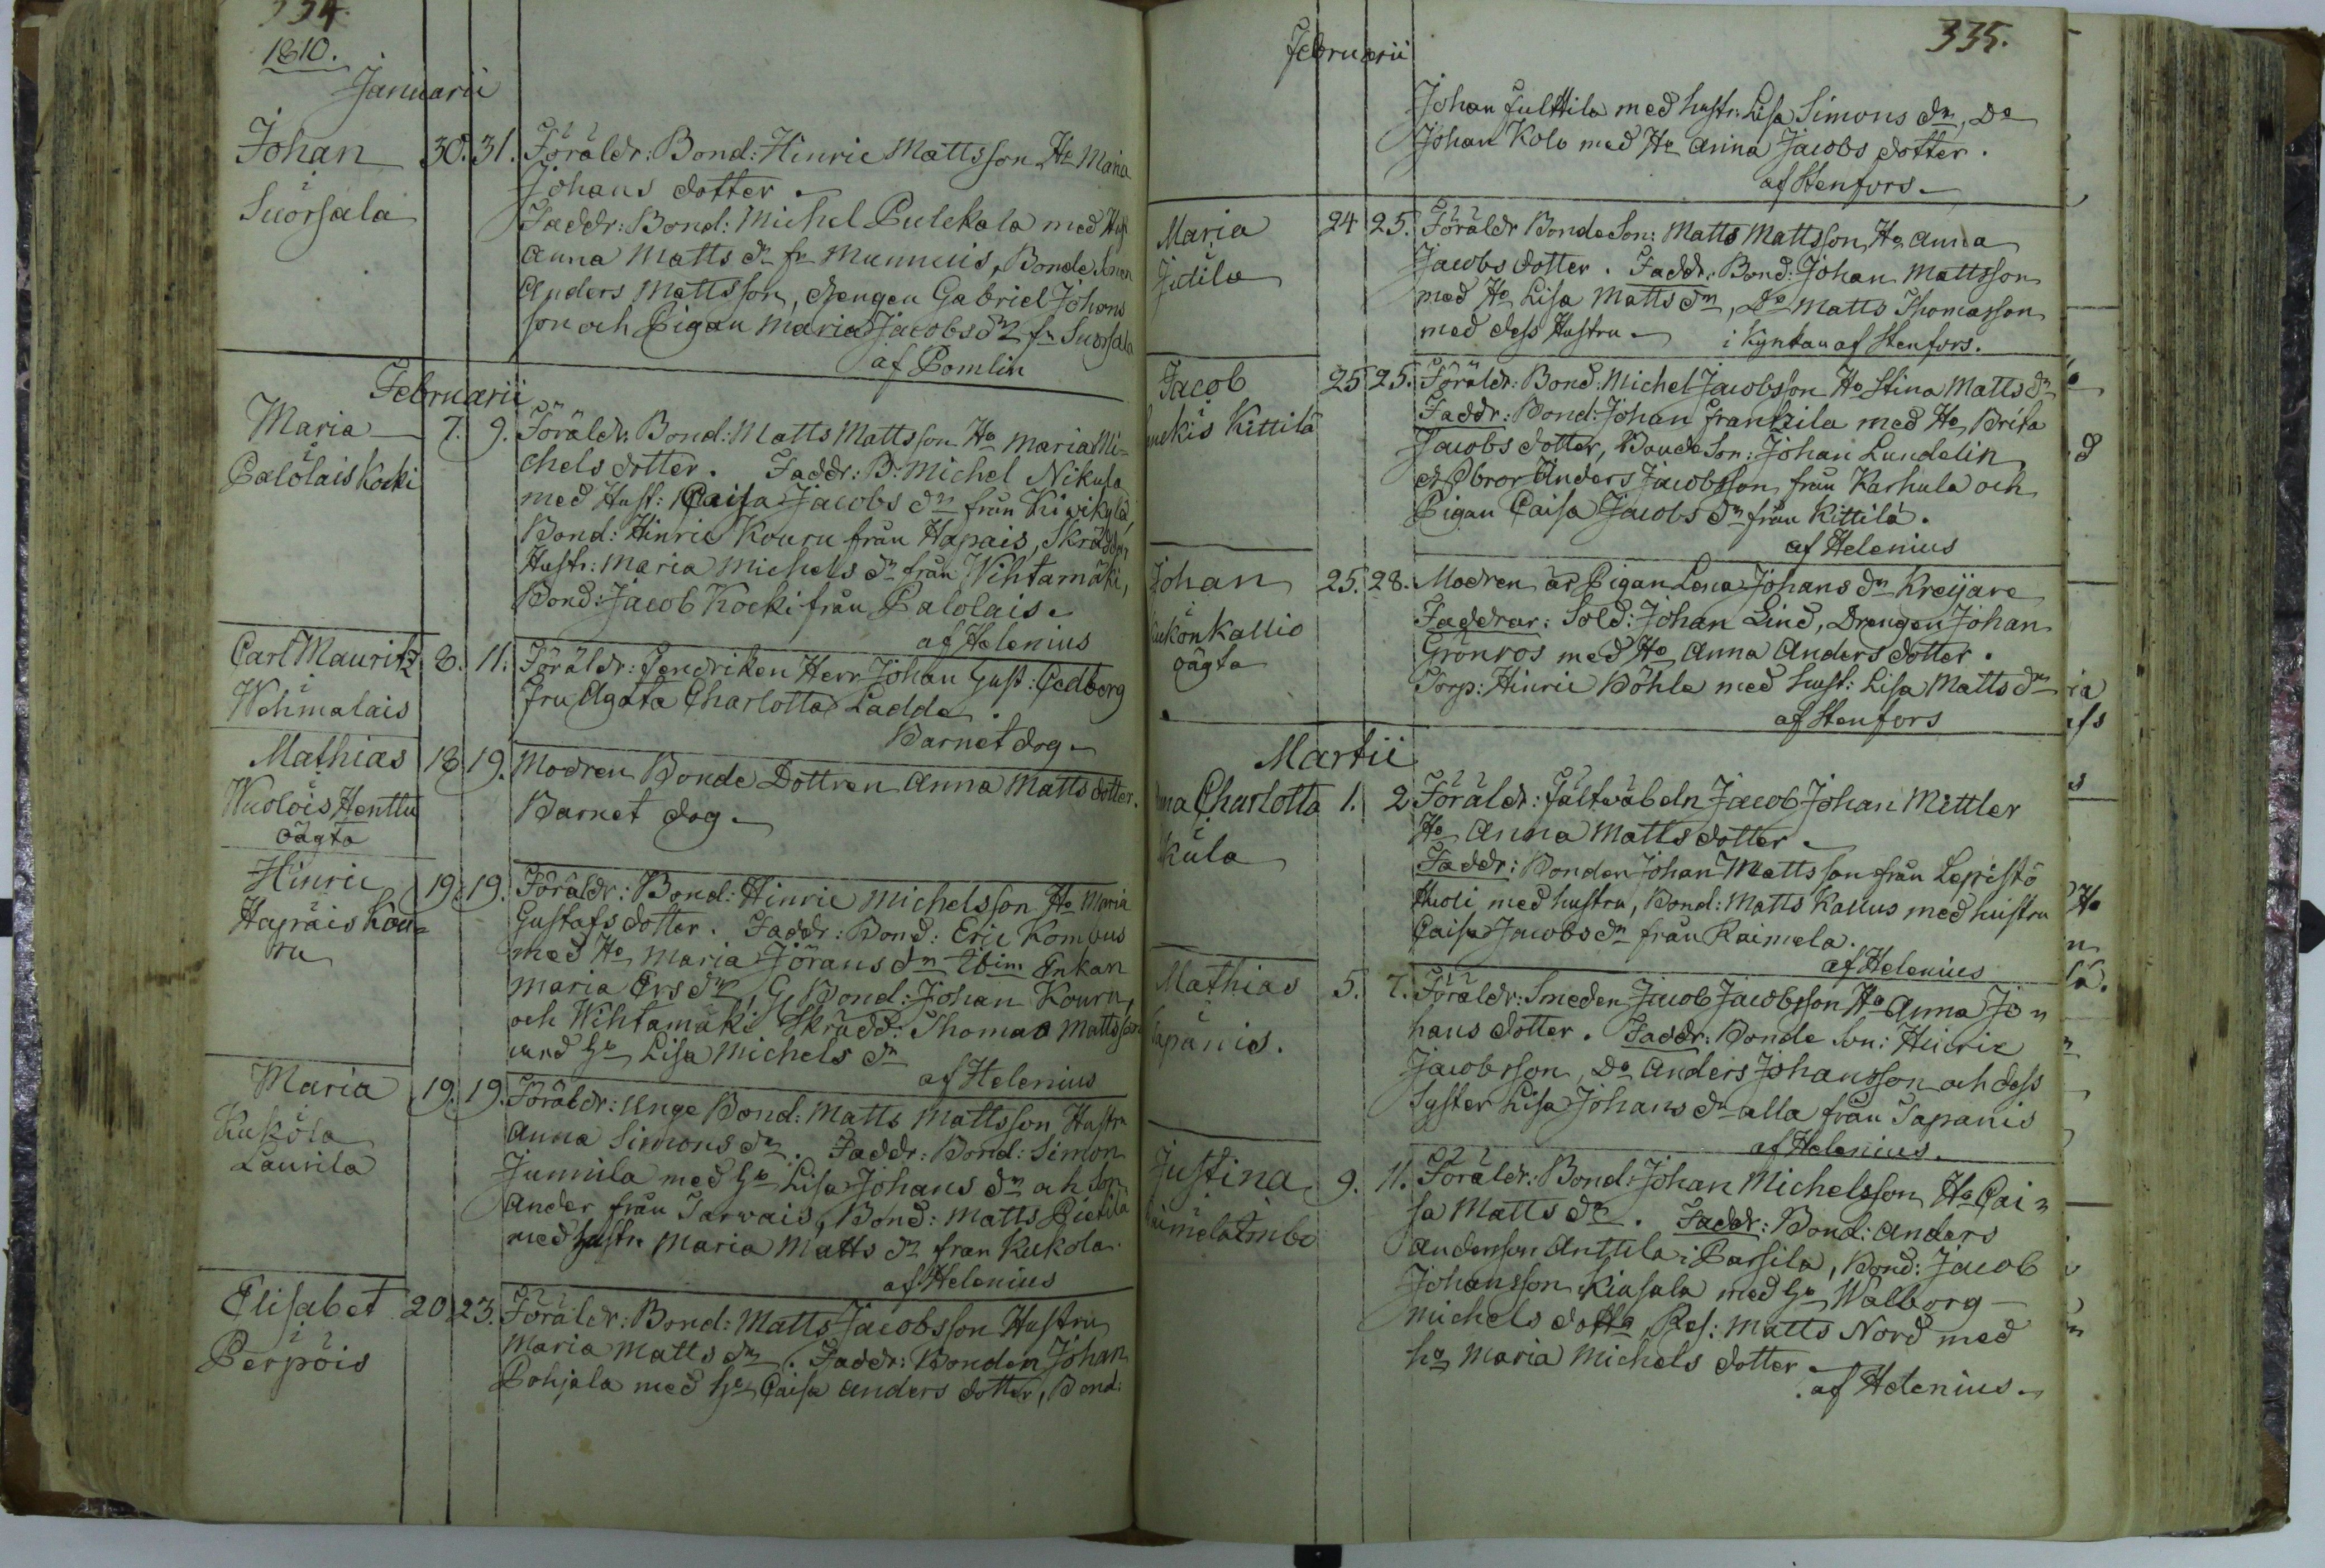 334.
1810.
Januarii
Johan 30. 31. Föräldr: Bond: Hinric Mattsson Ha Maria
Suorsala Johans dotter.
Faddr: Bond: Michel Pulckala med Hust
Anna Matts dr fr Munnuis, Bonde Sonen
Anders Mattsson, drengen Gabriel Johans
son och Pigan Maria Jacobs dr fr Suorsala
af Pomlin
Februarii
Maria 7. 9. Föräldr: Bond: Matts Mattsson Ha Maria Mi-
Palolais Kocki chels dotter. Faddr: B: Michel Nikula
med Hust: Caisa Jacobs dr från Kiwikylä
Bond: Hinric Kouru från Hapais, Skrädd:
Hustr: Maria Michels dr från Wihtamäki,
Bond: Jacob Kocki från Palolais.
af Helenius
Carl Mauritz 8. 11. Föräldr: Fendriken Herr Johan Gust: Cedborg
Wehmalais fru Agata Charlotta Ladda.
Barnet dog.
Mathias 18 19. Modren Bonde Dottren Anna Matts dotter.
Wuolois Henttu Barnet dog.
oägta
Hinric 19. 19. Föräldr: Bond: Hinric Michelsson Ha Maria
Hapräis Kou= Gustafs dotter. Faddr: Bond: Eric Kompus
ru med Ha Maria Jörans dr Enkan
Maria Ers dr, Bond: Johan Kouru,
och Wihtamäki Skrädd: Thomas Mattsson
med ha Lisa Michels dr
af Helenius
Maria 19. 19. Föräldr: Unge Bond: Matts Mattsson Hustr
Kukola Anna Simons dr. Faddr: Bond: Simon
Laurila Junnila med ha Lisa Johans dr och Son
Ander från Tarvais, Bond: Matts Pietilä
med hustr Maria Matts dr fran Kukola.
af Helenius
Elisabet 20 23. Föräldr: Bond: Matts Jacobsson Hustru
Perpöis Maria Matts dr. Faddr: Bonden Johan
Pohjala med ha Caisa Anders dotter, Bond:
335.
Februarii
Johan Julttila med hustr: Lisa Simons dr, Do
Johan Kolo med Ha Anna Jacobs dotter.
af Stenfors
Maria 24 25. Föräldr Bonde Son: Matts Mattsson, Ha Anna
Jutila Jacobs dotter. Faddr: Bond: Johan Mattsson
med Ha Lisa Matts dr, Do Matts Thomasson
med dess Hustru i Kyrkan af Stenfors.
Jacob 25 25. Föräldr: Bond: Michel Jacobsson Ha Stina Matts dr
Kittilä Faddr: Bond: Johan Frankila med Ha Brita
Jacobs dotter, Bonde Son: Johan Lundelin
dess bror Anders Jacobsson från Karhula och
Pigan Caisa Jacobs dr från Kittilä.
af Helenius
Johan 25. 28. Modren är Pigan Lena Johans dr Kreijare
Kukonkallio Faddrar: Sold: Johan Lind, Drengen Johan
oägta Grönros med Ha Anna Anders dotter.
Torp: Hinric Böhle med hust: Lisa Matts dr
af Stenfors
Martii
Anna Charlotta 1. 2 Föräldr: Fältwäbeln Jacob Johan Mittler
Ha Anna Matts dotter
Faddr: Bonden Johan Mattsson från Lepistö
med hustru, Bond: Matts Kallus med hustru
Caisa Jacobs dr från Raimela.
af Helenius
Mathias 5. 7. Föräldr: Smeden Jacob Jacobsson Ha Anna Jo=
Tapanis. hans dotter. Faddr: Bonde Son: Hinric
Jacobsson, Do Anders Johansson och dess
Syster Lisa Johans dr alla från Tapanis
af Helenius.
Justina 9. 11. Föräldr: Bond: Johan Michelsson Ha Cai=
sa Matts dr. Faddr: Bond: Anders
Andersson Anttila i Parsila, Bond: Jacob
Johansson Kiusala med ha Walborg
Michels dotter, Res: Matts Nord med
ha Maria Michels dotter
af Helenius